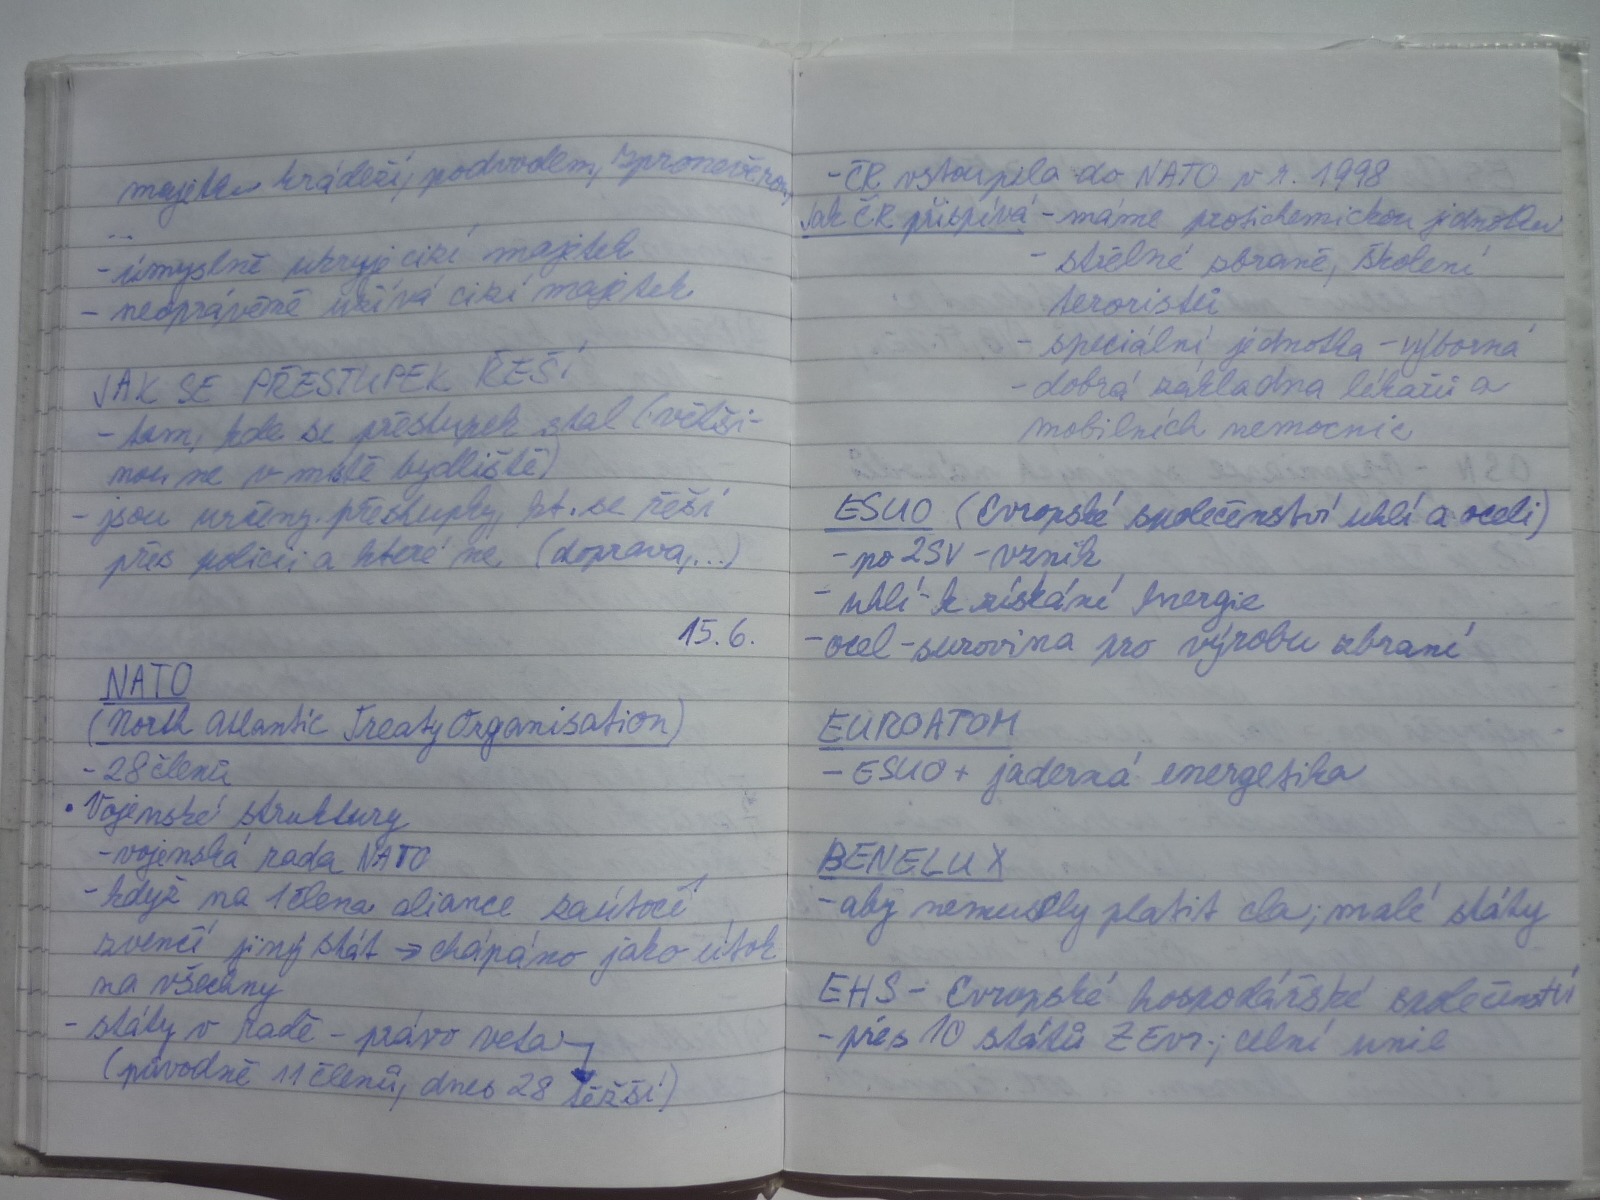 majetku krádeží, podvodem, zpronevěrou,
...
- úmyslně ukryje cizí majetek
- neoprávěně užívá cizí majetek
JAK SE PŘESTUPEK ŘEŠÍ
- tam, kde se přestupek stal (větši-
nou ne v místě bydliště)
- jsou určeny přestupky, kt. se řeší
přes policii a které ne (doprava,...)
15.6.
NATO
(North Atlantic Treaty Organisation)
- 28 členů
• Vojenské struktury
- vojenská rada NATO
- když na 1 člena aliance zaútočí
zvenčí jiný stát → chápáno jako útok
na všechny
- státy v radě - právo veta
(původně 11 členů, dnes 28 těžší)
- ČR vstoupila do NATO v r. 1998
Jak ČR přispívá - máme protichemickou jednotku
- střelné zbraně, školení
teroristů
- speciální jednotka - výborná
- dobrá základna lékařů a
mobilních nemocnic
ESUO (Evropské společenství uhlí a oceli)
- po 2SV - vznik
- uhlí - k získání energie
- ocel - surovina pro výrobu zbraní
EUROATOM
- ESUO + jaderná energetika
BENELUX
- aby nemusely platit cla; malé státy
EHS - Evropské hospodářské společenství
- přes 10 států Z Evr.; celní unie